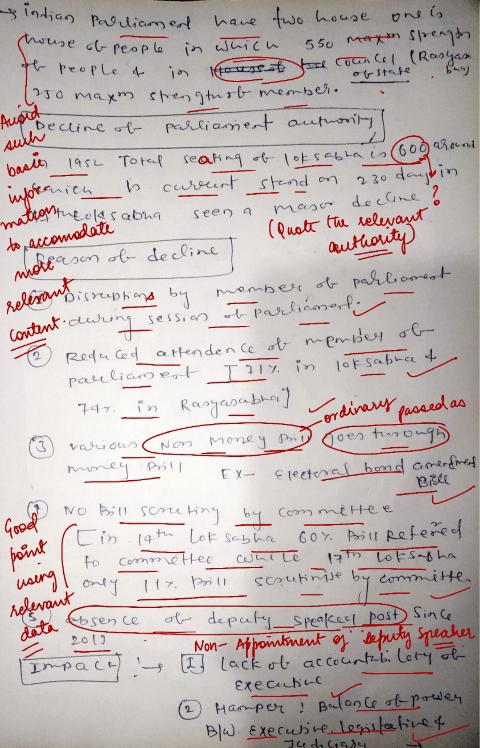 → Indian Parliament have two house one is
house of people in which 550 maxm strength
of people & in the council (Rasya
of state
250 maxm strength of member.
Avoid such basic information to accomodate more relevant content.
Decline of parliament authority
1952 Total seating of loksabha is 600 around
which is current stand on 230 day in
loksabha seen a major decline ?
(Quote the relevant authority)
Reason of decline
Disruptions by member of parliament
during session of parliament.
② Reduced attendence of member of
parliament [71% in loksabha &
74% in Rasyasabha]
ordinary passed as
③ various Non Money Bill goes through
money Bill Ex- Electoral bond amendment
Bill
④ No Bill scrutiny by committee
[in 14th Lok sabha 60% Bill Refered
to committee while 17th loksabha
only 11% Bill scrutinise by committee.
Good point using relevant data
5. absence of deputy speaker post Since
2019
Non-Appointment of Deputy Speaker
Impact :→ [1] lack of accountability of
executive
② Hamper : Balance of power
B/w executive legislative &
Judiciary